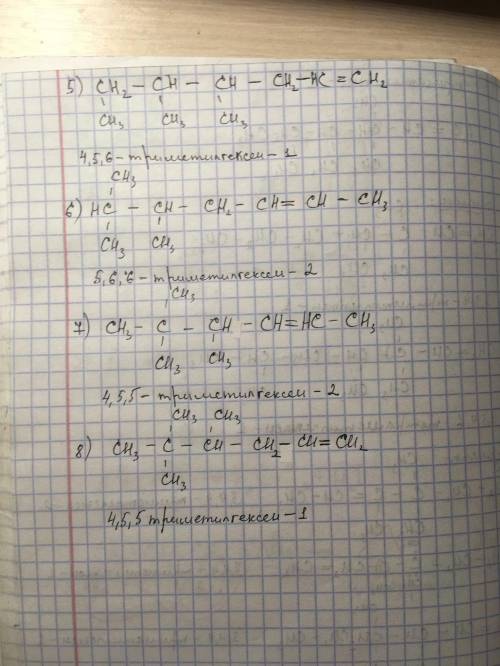 5) CH2 – CH – CH – CH2 – HC = CH2
CH3 CH3 CH3
4,5,6 – триметилгексен – 1
CH3
6) HC – CH – CH2 – CH = CH – CH3
CH3 CH3
5,6,6 – триметилгексен – 2
CH3
7) CH3 – C – CH – CH = HC – CH3
CH3 CH3
4,5,5 – триметилгексен – 2
CH3 CH3
8) CH3 – C – CH – CH2 – CH = CH2
CH3
4,5,5 триметилгексен – 1